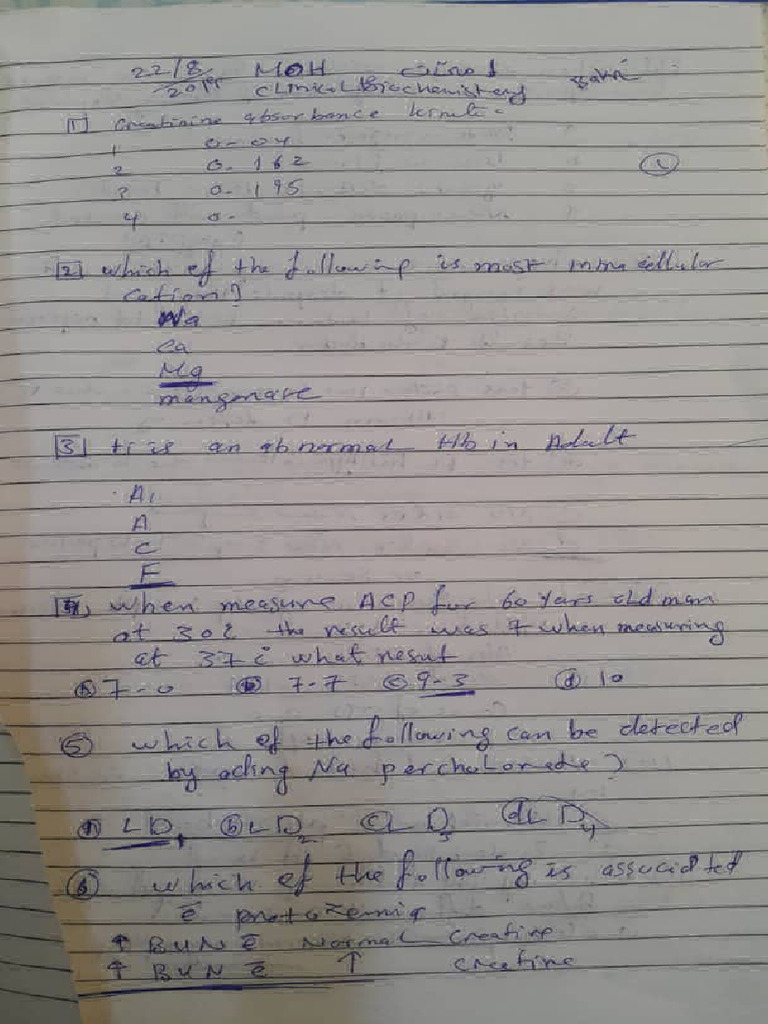 22/8/2019 MOH
Clinical Biochemistery
[1] Creatinine absorbance kinetic -
1 0-04
2 0.162
3 0.195
4 0.
①
[2] which of the following is most intracellular
Cation?
Na
Ca
Mg
manganare
[3] ti is an abnormal Hb in Adult
A1
A
C
F
[4] when measure ACP for 60 years old man
at 30c the result was 7 when measuring
at 37c what resut
ⓐ 7-0 ⓑ 7-7 ⓒ 9-3 ⓓ 10
⑤ which of the following can be detected
by ading Na percholorate?
ⓐ LD1 ⓑ LD2 ⓒ LD3 ⓓ LD4
⑥ which of the following is associated
c̄
↑ BUN c̄ Normal creatine
↑ BUN c̄ ↑ creatine